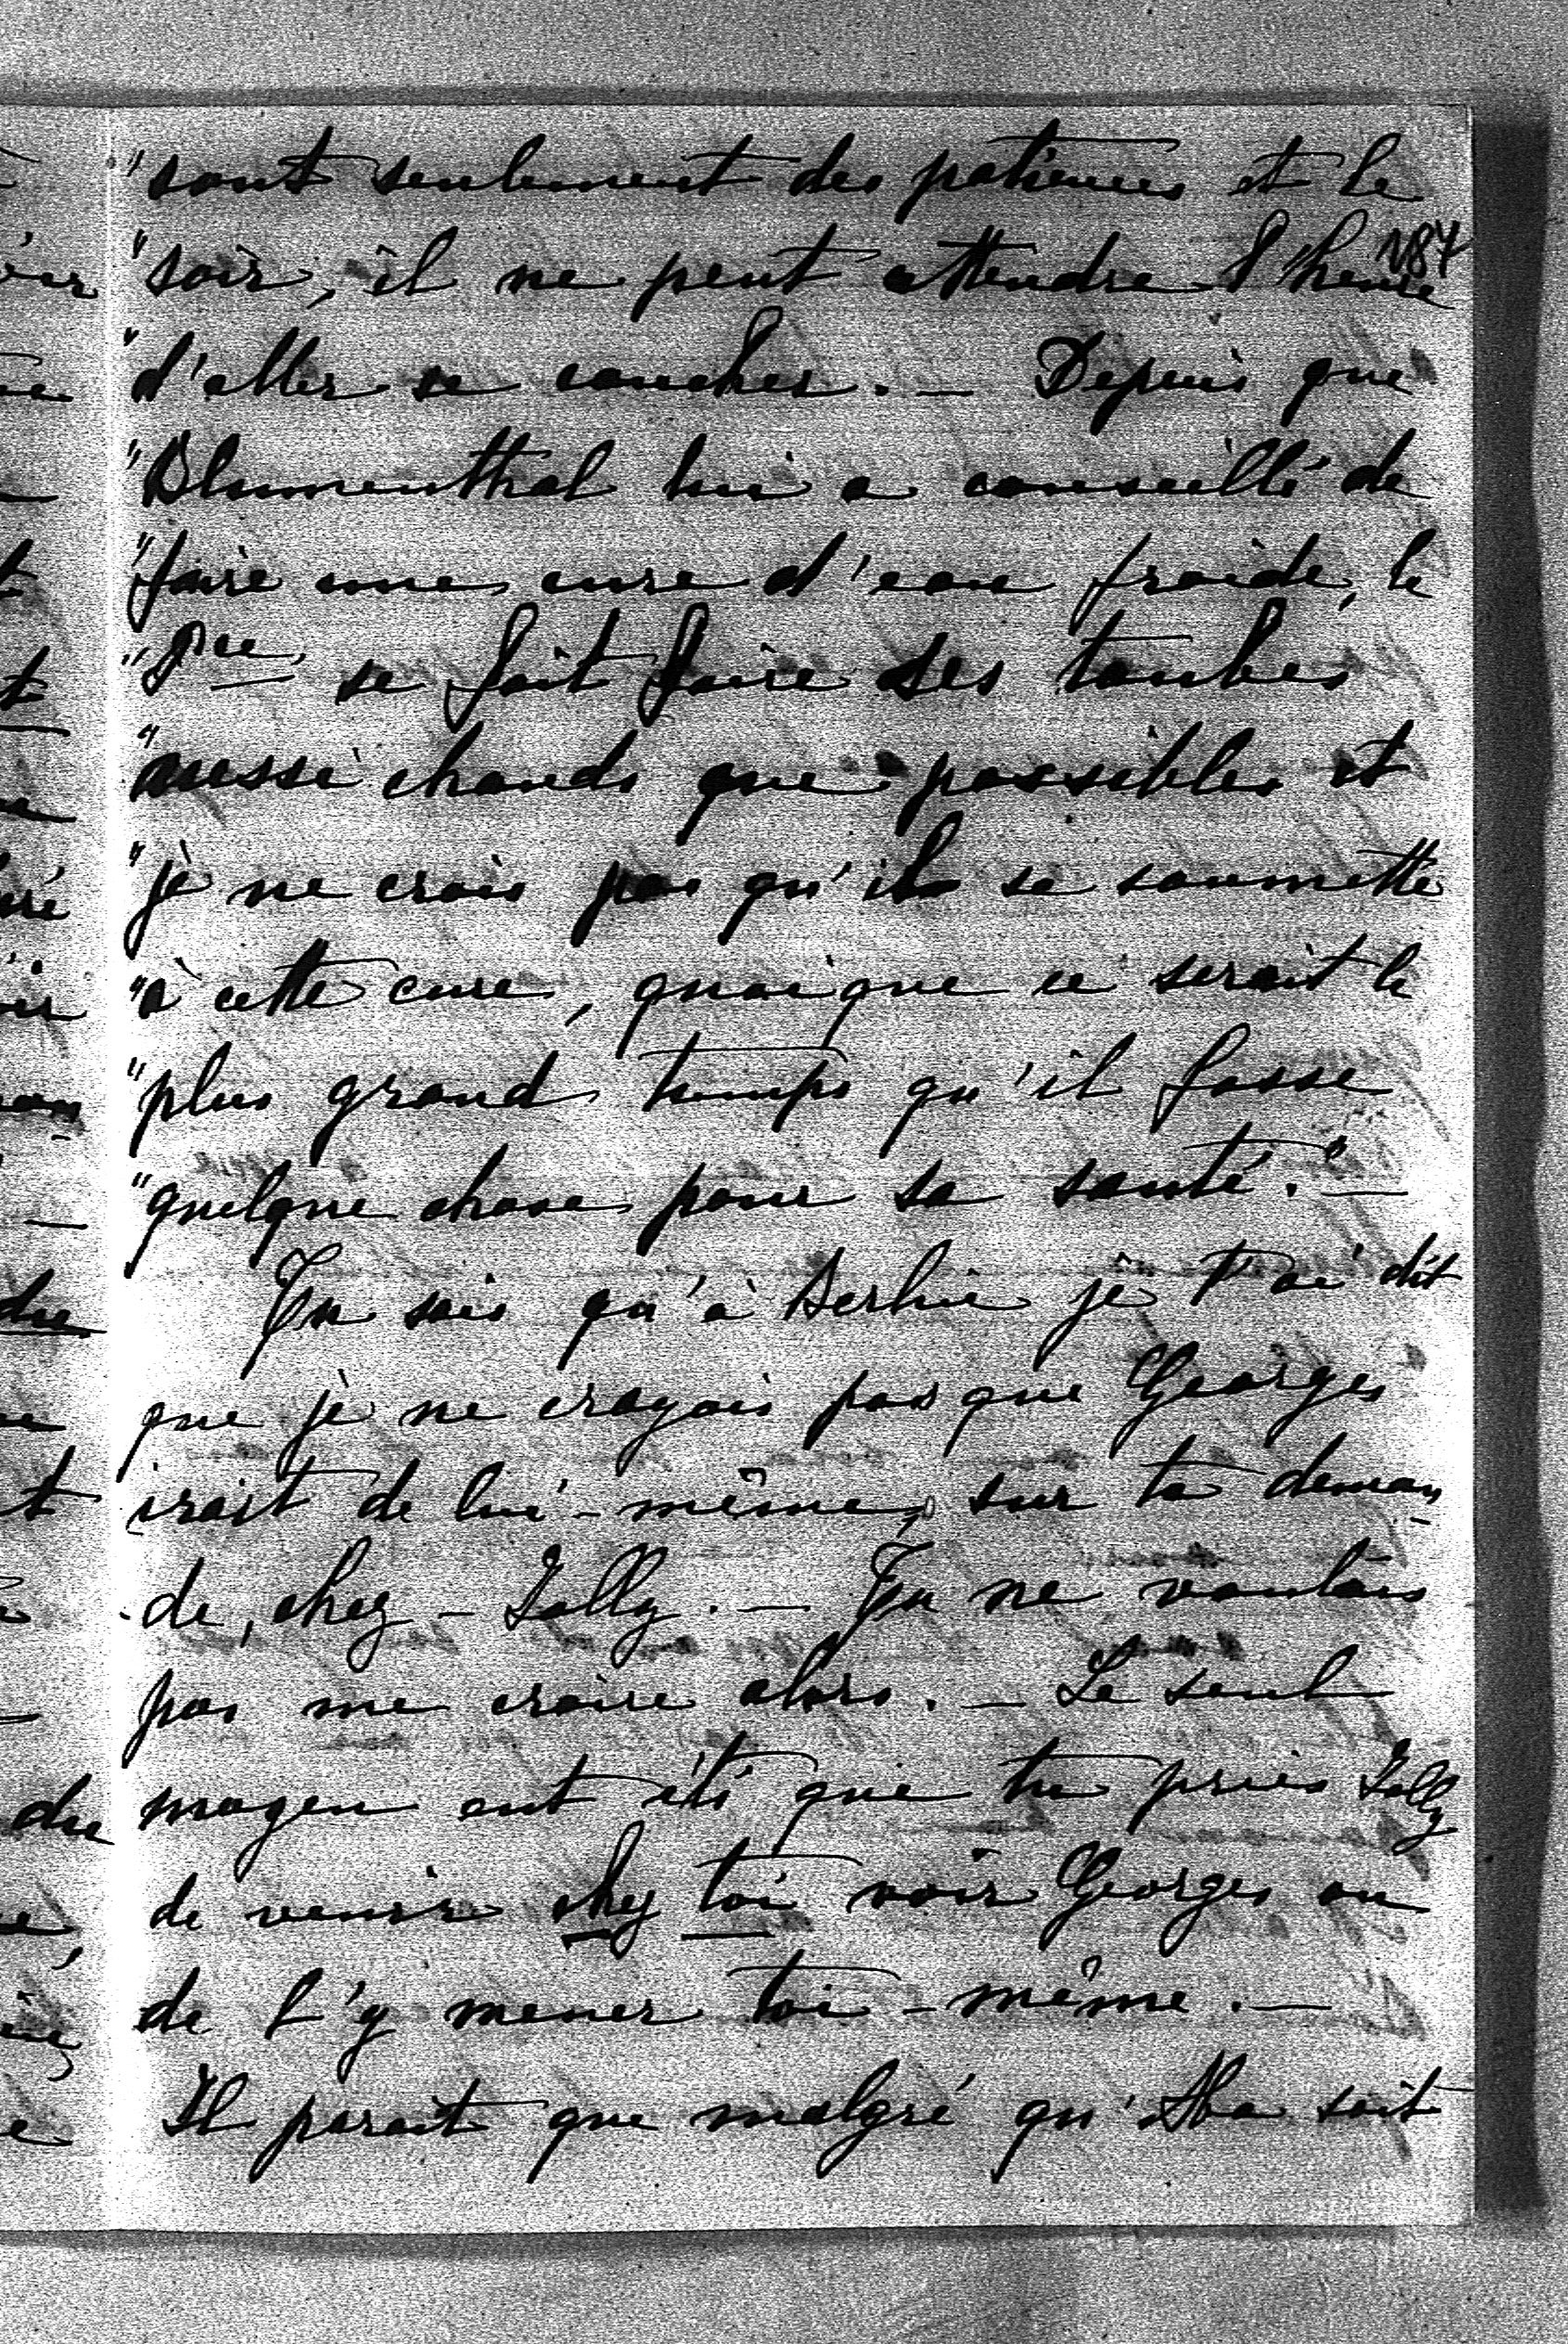 "sont seulement des patiences et le
187
"soir, il ne peut attendre l'heure
"d'aller se coucher. — Depuis que
"Blumenthal lui a conseillé de
"faire une cure d'eau froide, le
"Pce se fait faire ses toubes
"aussi chauds que possibles et
"je ne crois pas qu'il se soumette
"à cette cure, quoique ce serait le
"plus grand temps qu'il fasse
"quelque chose pour sa santé." —
Tu sais qu'à Berlin je t'ai dit
que je ne croyais pas que Georges
irait de lui-même, sur ta deman-
de, chez - Jolly. — Tu ne voulais
pas me croire alors. — Le seul
moyen eut été que tu pries Jolly
de venir chez toi voir Georges ou
de l'y mener toi-même. —
Il parait que malgré qu'Aba soit